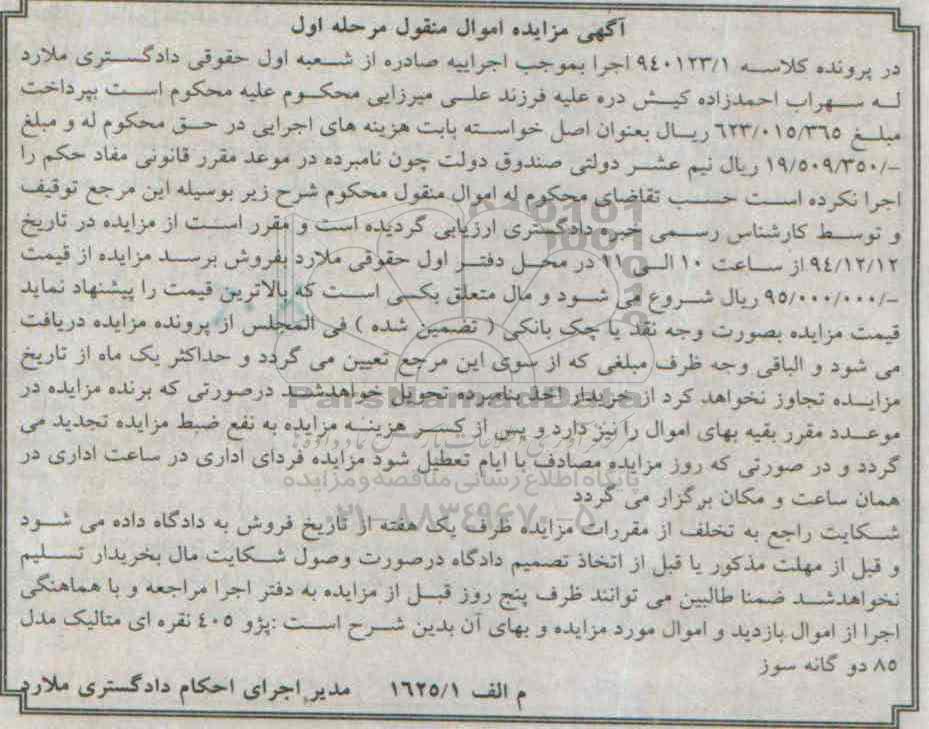 آگهی مزایده اموال منقول مرحله اول
در پرونده کلاسه ۹٤۰۱۲۳/۱ اجرا بموجب اجراییه صادره از شعبه اول حقوقی دادگستری ملارد
له سهراب احمدزاده کیش دره علیه فرزند علی میرزایی محکوم علیه محکوم است بپرداخت
مبلغ ٦۲۳/۰۱٥/۳٦٥ ریال بعنوان اصل خواسته بابت هزینه های اجرایی در حق محکوم له و مبلغ
۱۹/٥۰۹/۳٥۰/- ریال نیم عشر دولتی صندوق دولت چون نامبرده در موعد مقرر قانونی مفاد حکم را
اجرا نکرده است حسب تقاضای محکوم له اموال منقول محکوم شرح زیر بوسیله این مرجع توقیف
و توسط کارشناس رسمی خبره دادگستری ارزیابی گردیده است و مقرر است از مزایده در تاریخ
۹٤/۱۲/۱۲ از ساعت ۱۰ الی ۱۱ در محل دفتر اول حقوقی ملارد بفروش برسد مزایده از قیمت
۹٥/۰۰۰/۰۰۰/- ریال شروع می شود و مال متعلق بکسی است که بالاترین قیمت را پیشنهاد نماید
قیمت مزایده بصورت وجه نقد یا چک بانکی ( تضمین شده ) فی المجلس از پرونده مزایده دریافت
می شود و الباقی وجه ظرف مبلغی که از سوی این مرجع تعیین می گردد و حداکثر یک ماه از تاریخ
مزایده تجاوز نخواهد کرد از خریدار اخذ بنامبرده تحویل خواهدشد درصورتی که برنده مزایده در
موعدد مقرر بقیه بهای اموال را نیز دارد و پس از کسر هزینه مزایده به نفع ضبط مزایده تجدید می
گردد و در صورتی که روز مزایده مصادف با ایام تعطیل شود مزایده فردای اداری در ساعت اداری در
همان ساعت و مکان برگزار می گردد
شکایت راجع به تخلف از مقررات مزایده ظرف یک هفته از تاریخ فروش به دادگاه داده می شود
و قبل از مهلت مذکور یا قبل از اتخاذ تصمیم دادگاه درصورت وصول شکایت مال بخریدار تسلیم
نخواهدشد ضمنا طالبین می توانند ظرف پنج روز قبل از مزایده به دفتر اجرا مراجعه و با هماهنگی
اجرا از اموال بازدید و اموال مورد مزایده و بهای آن بدین شرح است :پژو ٤۰٥ نقره ای متالیک مدل
۸٥ دو گانه سوز
م الف ۱٦۲٥/۱ مدیر اجرای احکام دادگستری ملارد
ParsNamadData
پایگاه اطلاع رسانی مناقصه و مزایده
۰۲۱-۸۸۳٤۹٦۷۰-٥